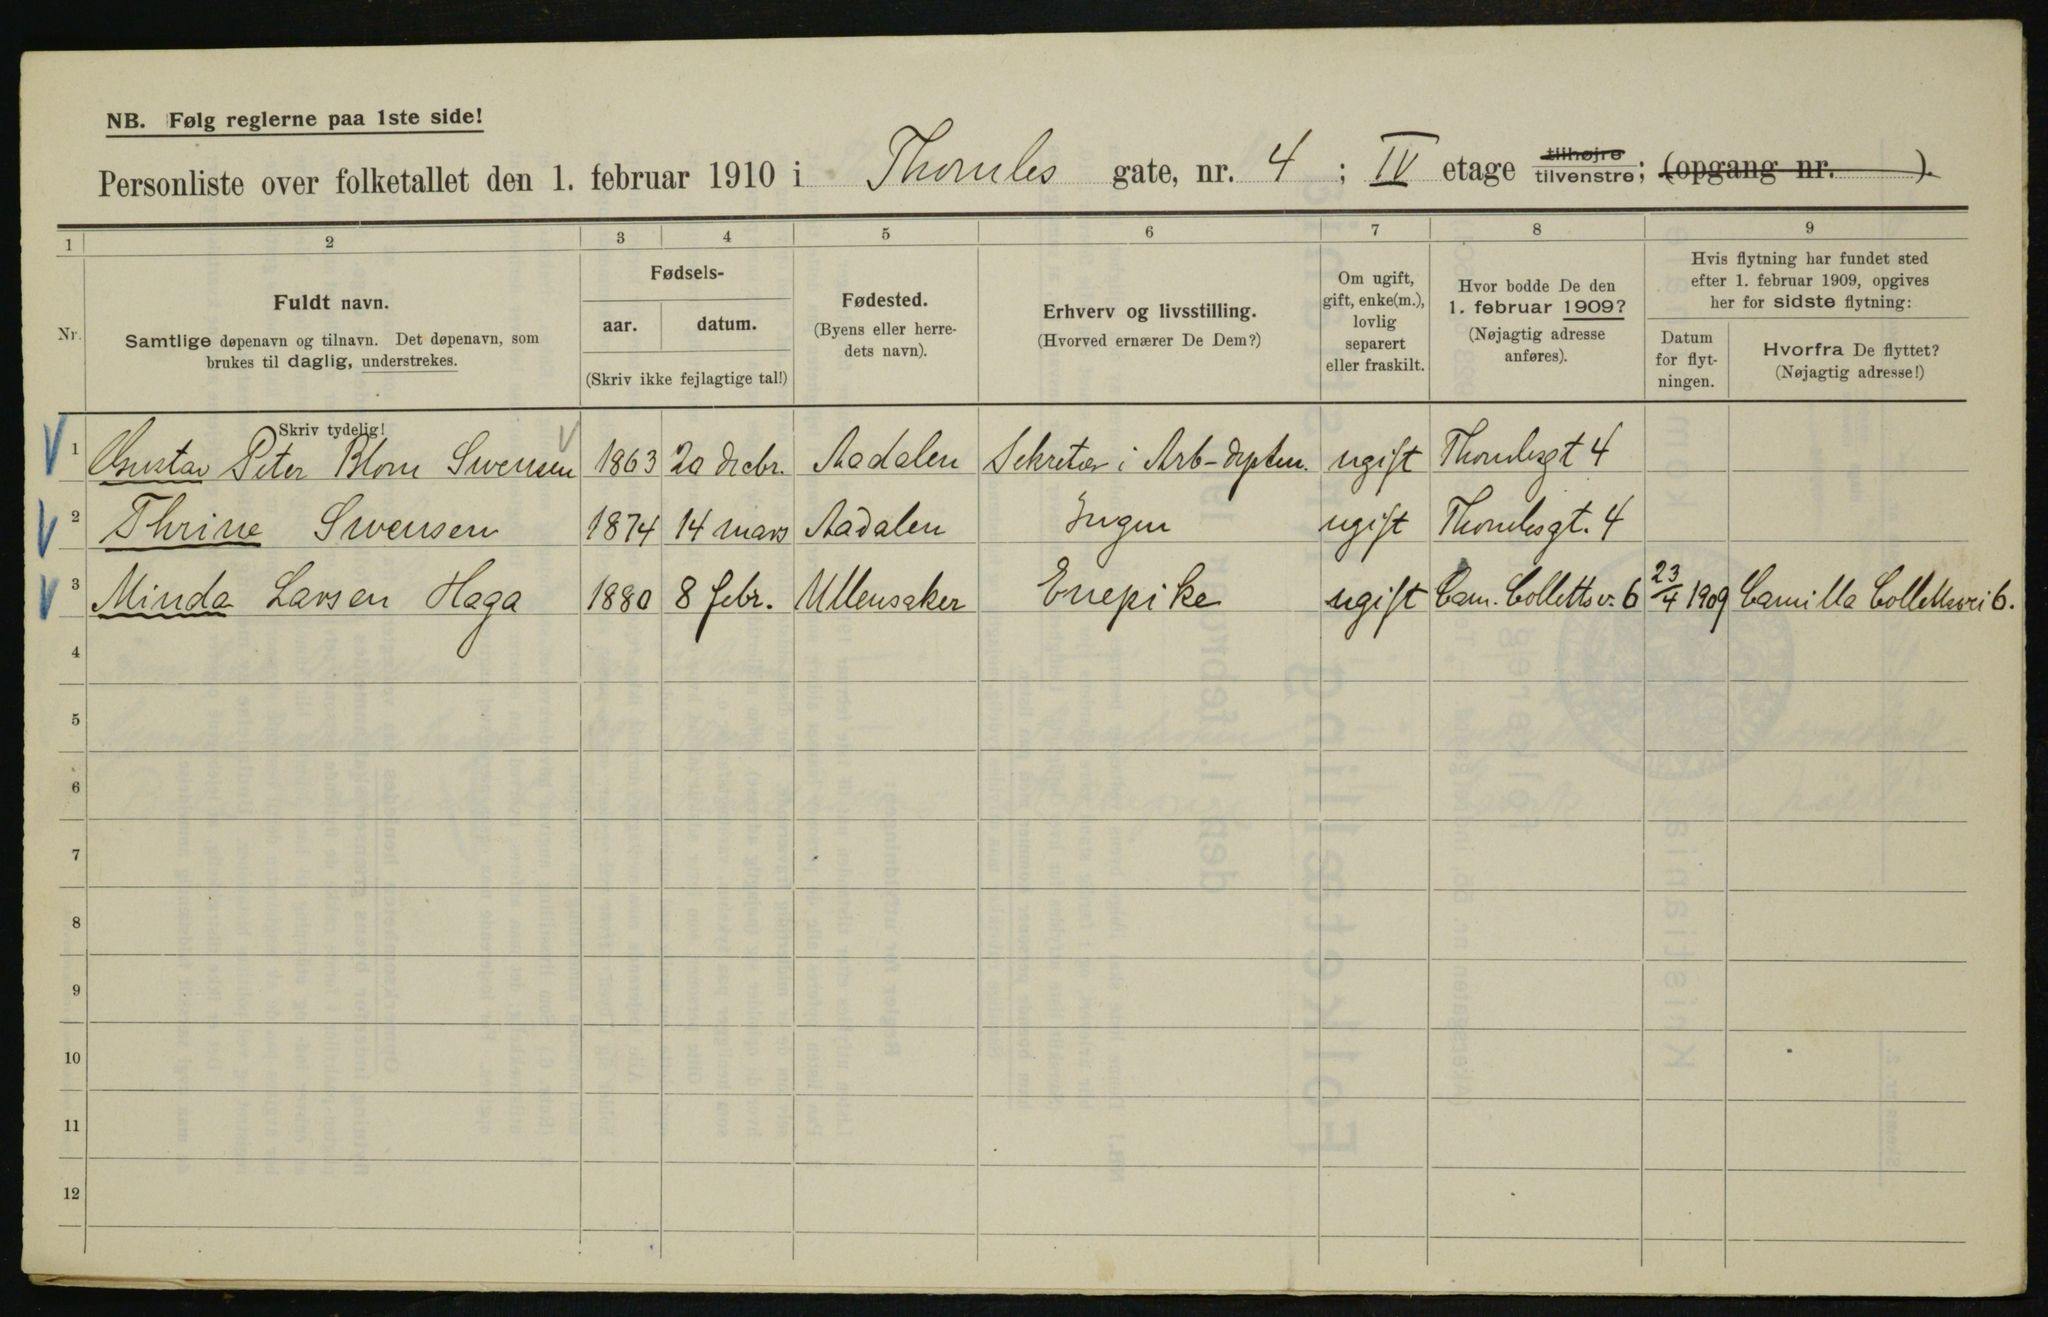 NB. Følg reglerne paa 1ste side!
Personliste over folketallet den 1. februar 1910 i Thomles gate, nr. 4 ; IV etage tilhøjre tilvenstre; (opgang nr. ).
1 2 3 4 5 6 7 8 9
Nr.
Fuldt navn.
Samtlige døpenavn og tilnavn. Det døpenavn, som
brukes til daglig, understrekes.
Fødsels-
aar. datum.
(Skriv ikke fejlagtige tal!)
Fødested.
(Byens eller herre-
dets navn).
Erhverv og livsstilling.
(Hvorved ernærer De Dem?)
Om ugift,
gift, enke(m.),
lovlig
separert
eller fraskilt.
Hvor bodde De den
1. februar 1909?
(Nøjagtig adresse
anføres).
Hvis flytning har fundet sted
efter 1. februar 1909, opgives
her for sidste flytning:
Datum
for flyt-
ningen.
Hvorfra De flyttet?
(Nøjagtig adresse!)
Skriv tydelig!
1 Gustav Peter Blom Swensen 1863 20 decbr. Aadalen Sekretær i Arb-depten. ugift Thomlesgt 4
2 Thrine Swensen 1874 14 mars Aadalen Ingen ugift Thomlesgt. 4
3 Minda Larsen Haga 1880 8 febr. Ullensaker Enepike ugift Cam. Colletts v. 6 23/4 1909 Camilla Collettsvei 6.
4
5
6
7
8
9
10
11
12